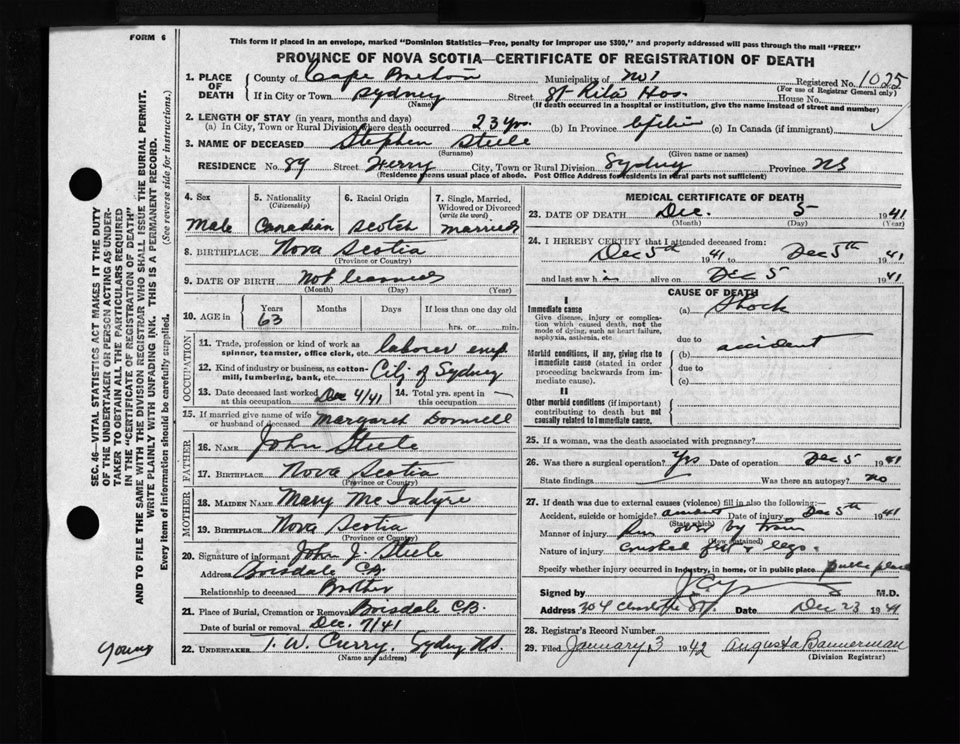 FORM 6
This form if placed in an envelope, marked "Dominion Statistics—Free, penalty for improper use $300," and properly addressed will pass through the mail "FREE"
PROVINCE OF NOVA SCOTIA—CERTIFICATE OF REGISTRATION OF DEATH
1. PLACE OF DEATH County of Cape Breton Municipality of No 1 Registered No. 1025
(For use of Registrar General only)
If in City or Town Sydney Street St Rita Hos. House No.
(Name) (If death occurred in a hospital or institution, give the name instead of street and number)
2. LENGTH OF STAY (in years, months and days)
(a) In City, Town or Rural Division where death occurred 23 yrs. (b) In Province (c) In Canada (if immigrant)
3. NAME OF DECEASED Stephen Steele
(Surname) (Given name or names)
RESIDENCE No. 89 Street Ferry City, Town or Rural Division Sydney Province NS
(Residence means usual place of abode. Post Office Address for residents in rural parts not sufficient)
4. Sex 5. Nationality (Citizenship) 6. Racial Origin 7. Single, Married, Widowed or Divorced (write the word)
Male Canadian Scotch Married
8. BIRTHPLACE Nova Scotia
(Province or Country)
9. DATE OF BIRTH Not learned
(Month) (Day) (Year)
10. AGE in Years Months Days If less than one day old
63 hrs. or min.
OCCUPATION
11. Trade, profession or kind of work as spinner, teamster, office clerk, etc. laborer emp
12. Kind of industry or business, as cotton-mill, lumbering, bank, etc. City of Sydney
13. Date deceased last worked at this occupation Dec 4/41 14. Total yrs. spent in this occupation —
15. If married give name of wife or husband of deceased Margaret Donnell
FATHER
16. NAME John Steele
17. BIRTHPLACE Nova Scotia
(Province or Country)
MOTHER
18. MAIDEN NAME Mary McIntyre
19. BIRTHPLACE Nova Scotia
(Province or Country)
20. Signature of informant John J Steele
Address Boisdale C.B.
Relationship to deceased Brother
21. Place of Burial, Cremation or Removal Boisdale C.B.
Date of burial or removal Dec. 7/41
22. UNDERTAKER T. W. Curry. Sydney N.S.
(Name and address)
MEDICAL CERTIFICATE OF DEATH
23. DATE OF DEATH Dec. 5 1941
(Month) (Day) (Year)
24. I HEREBY CERTIFY that I attended deceased from:
Dec 5th 1941 to Dec 5th 1941
and last saw h im alive on Dec 5 1941
CAUSE OF DEATH
I
Immediate cause (a) Shock
Give disease, injury or complication which caused death, not the mode of dying, such as heart failure, asphyxia, asthenia, etc
due to
Morbid conditions, if any, giving rise to immediate cause (stated in order proceeding backwards from immediate cause). (b) accident
due to
(c)
II
Other morbid conditions (if important) contributing to death but not causally related to immediate cause.
25. If a woman, was the death associated with pregnancy?
26. Was there a surgical operation? Yes Date of operation Dec 5 1941
State findings Was there an autopsy? no
27. If death was due to external causes (violence) fill in also the following:—
Accident, suicide or homicide? Date of injury Dec 5th 1941
(State which)
Manner of injury Run over by train
(How sustained)
Nature of injury crushed feet & legs.
Specify whether injury occurred in Industry, in home, or in public place public place
Signed by M.D.
Address 304 Charlotte St Date Dec 23 1941
28. Registrar's Record Number
29. Filed January 3 1942 Augusta Bannerman
(Division Registrar)
SEC. 46—VITAL STATISTICS ACT MAKES IT THE DUTY
OF THE UNDERTAKER OR PERSON ACTING AS UNDER-
TAKER TO OBTAIN ALL THE PARTICULARS REQUIRED
IN THE "CERTIFICATE OF REGISTRATION OF DEATH"
AND TO FILE THE SAME WITH THE DIVISION REGISTRAR WHO SHALL ISSUE THE BURIAL PERMIT.
WRITE PLAINLY WITH UNFADING INK. THIS IS A PERMANENT RECORD.
Every item of information should be carefully supplied. (See reverse side for instructions.)
Young